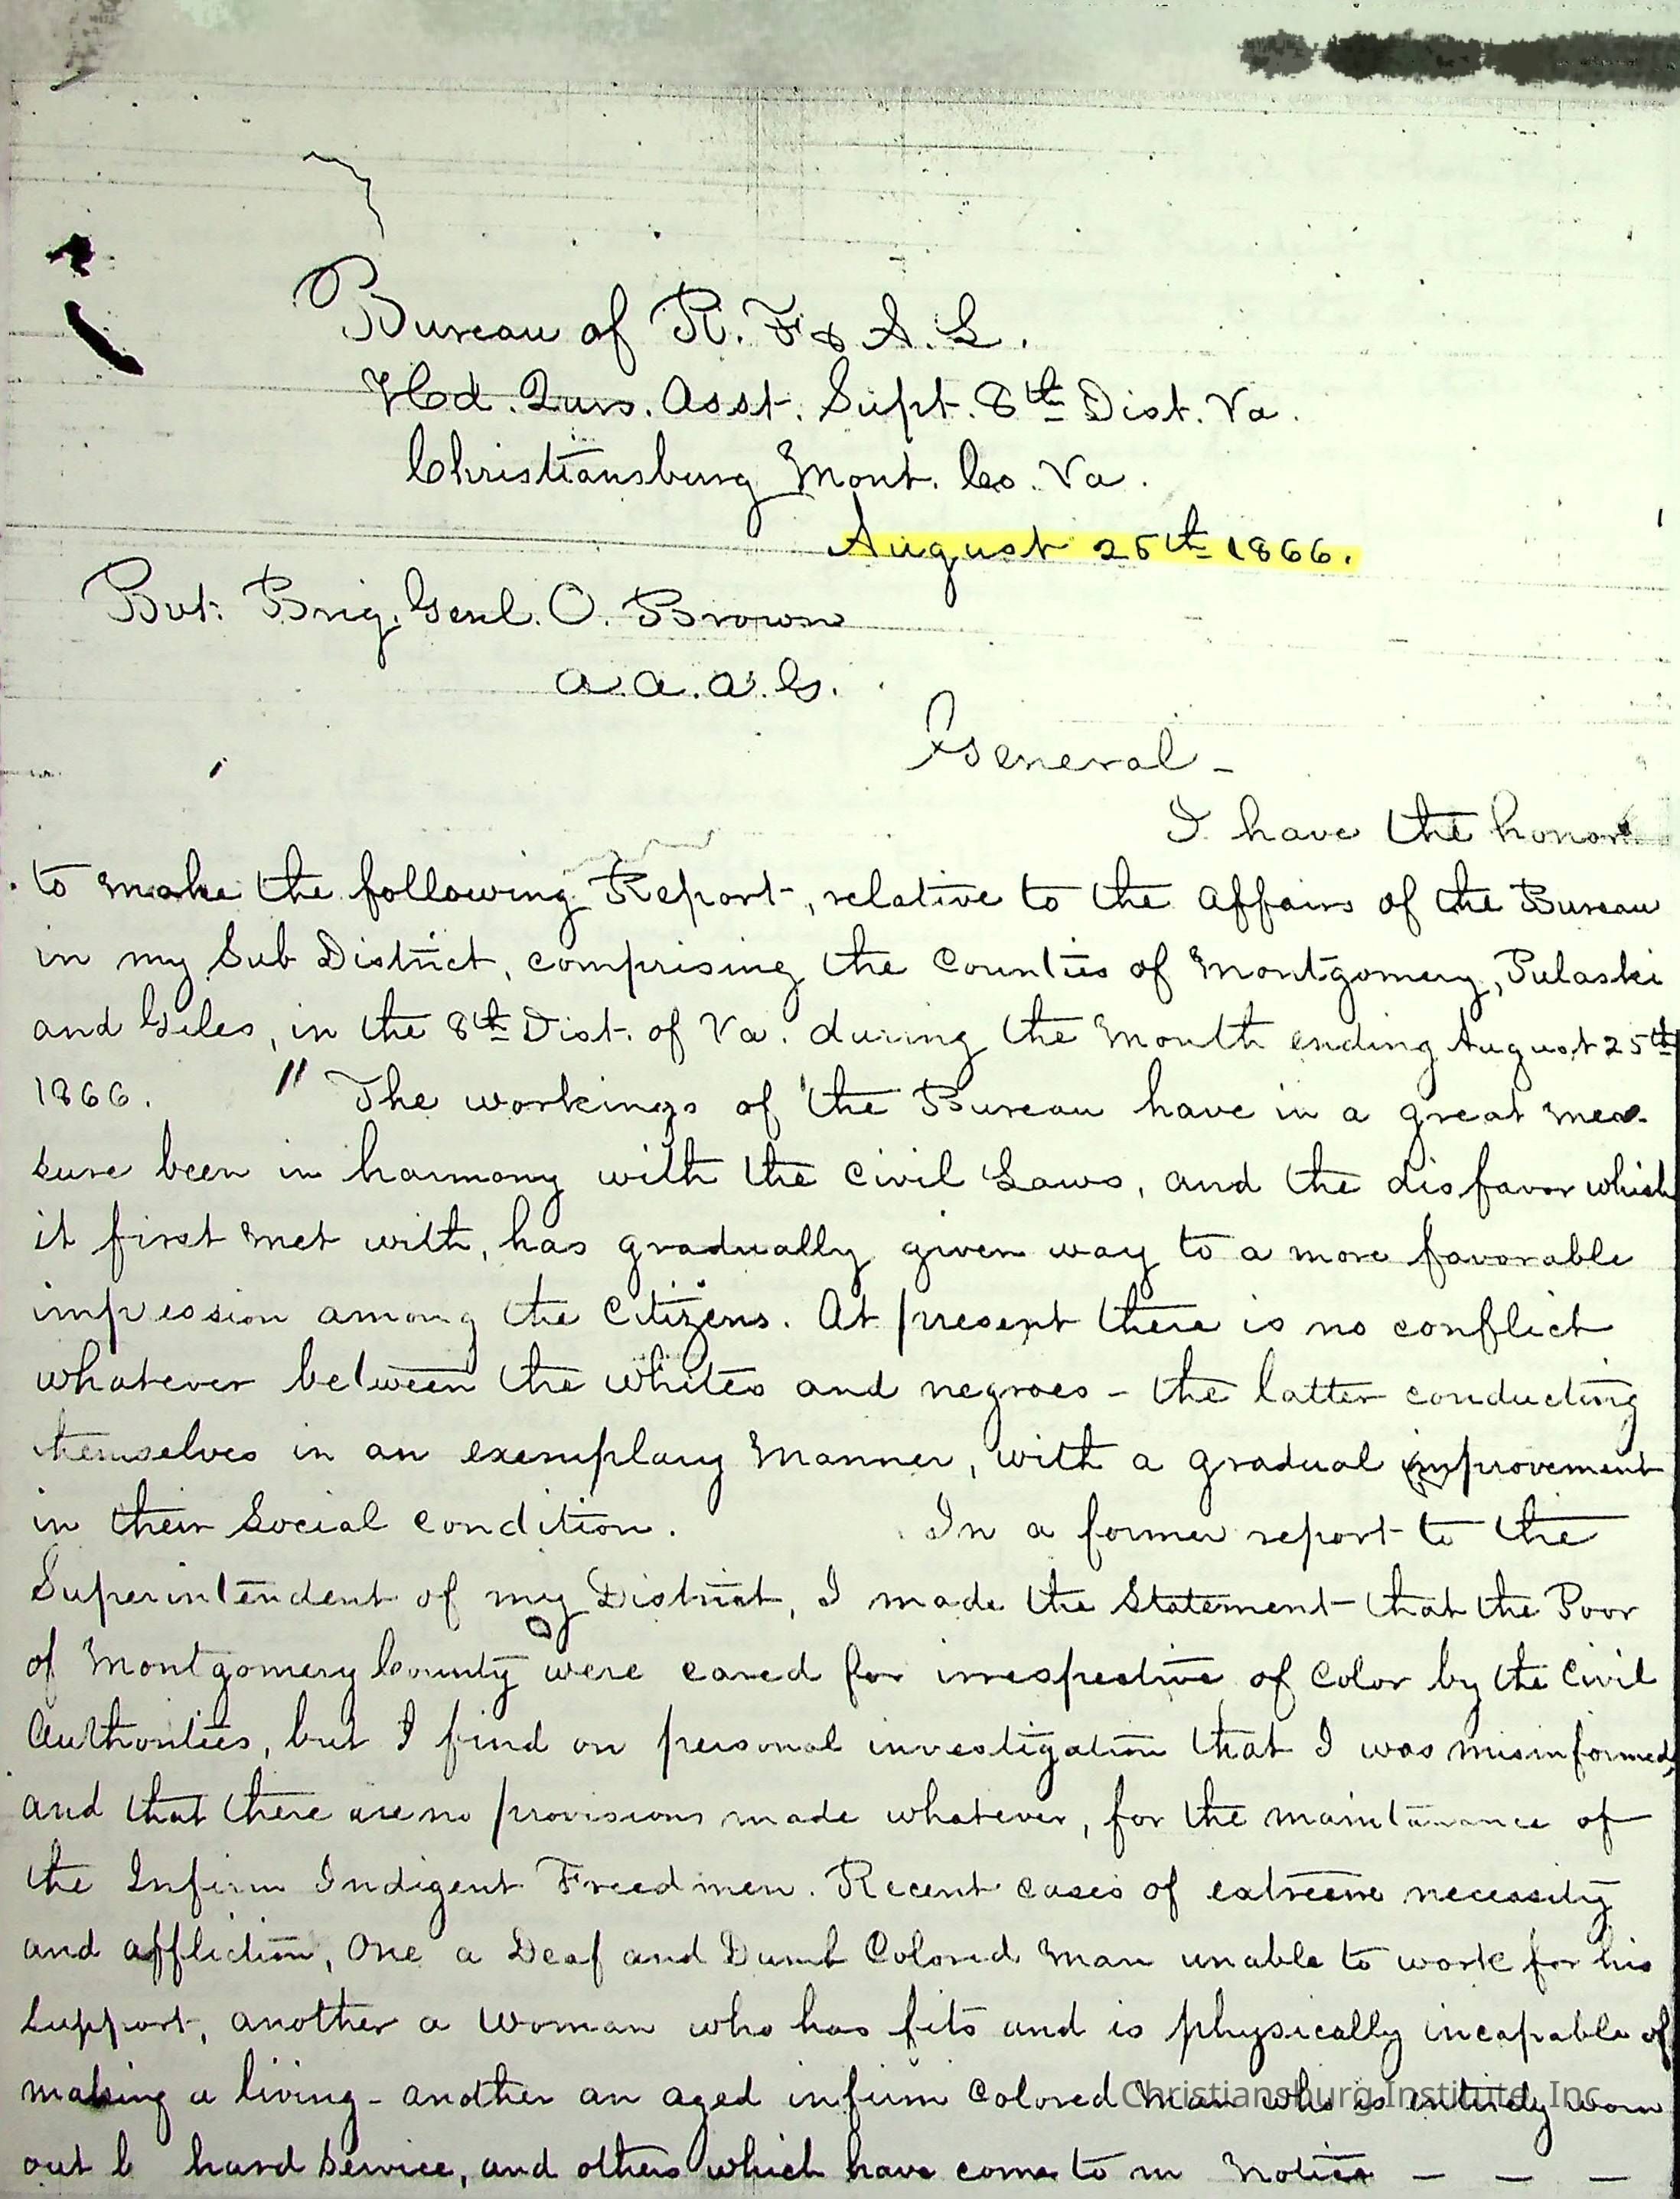 Bureau of R. F & A. L.
Hd. Qurs. Asst. Supt. 8th Dist. Va.
Christiansburg Mont. Co. Va.
August 25th 1866.
Bvt. Brig. Genl. O. Brown
A. A. A. G.
General -
I have the honor
to make the following Report, relative to the Affairs of the Bureau
in my Sub District, comprising the Counties of Montgomery, Pulaski
and Giles, in the 8th Dist. of Va. during the Month ending August 25th
1866. " The workings of the Bureau have in a great mea-
sure been in harmony with the Civil Laws, and the disfavor which
it first met with, has gradually given way to a more favorable
impression among the Citizens. At present there is no conflict
whatever between the whites and negroes - the latter conducting
themselves in an exemplary manner, with a gradual improvement
in their Social condition. In a former report to the
Superintendent of my District, I made the Statement that the Poor
of Montgomery County were cared for irrespective of Color by the Civil
Authorities, but I find on personal investigation that I was misinformed,
and that there are no provisions made whatever, for the maintanance of
the Infirm Indigent Freedmen. Recent cases of extreme necessity
and affliction, One a Deaf and Dumb Colored Man unable to work for his
support, another a Woman who has fits and is physically incapable of
making a living - another an aged infirm Colored Man who is entirely worn
out b hard Service, and others which have come to m Notice - - -
Christiansburg Institute, Inc